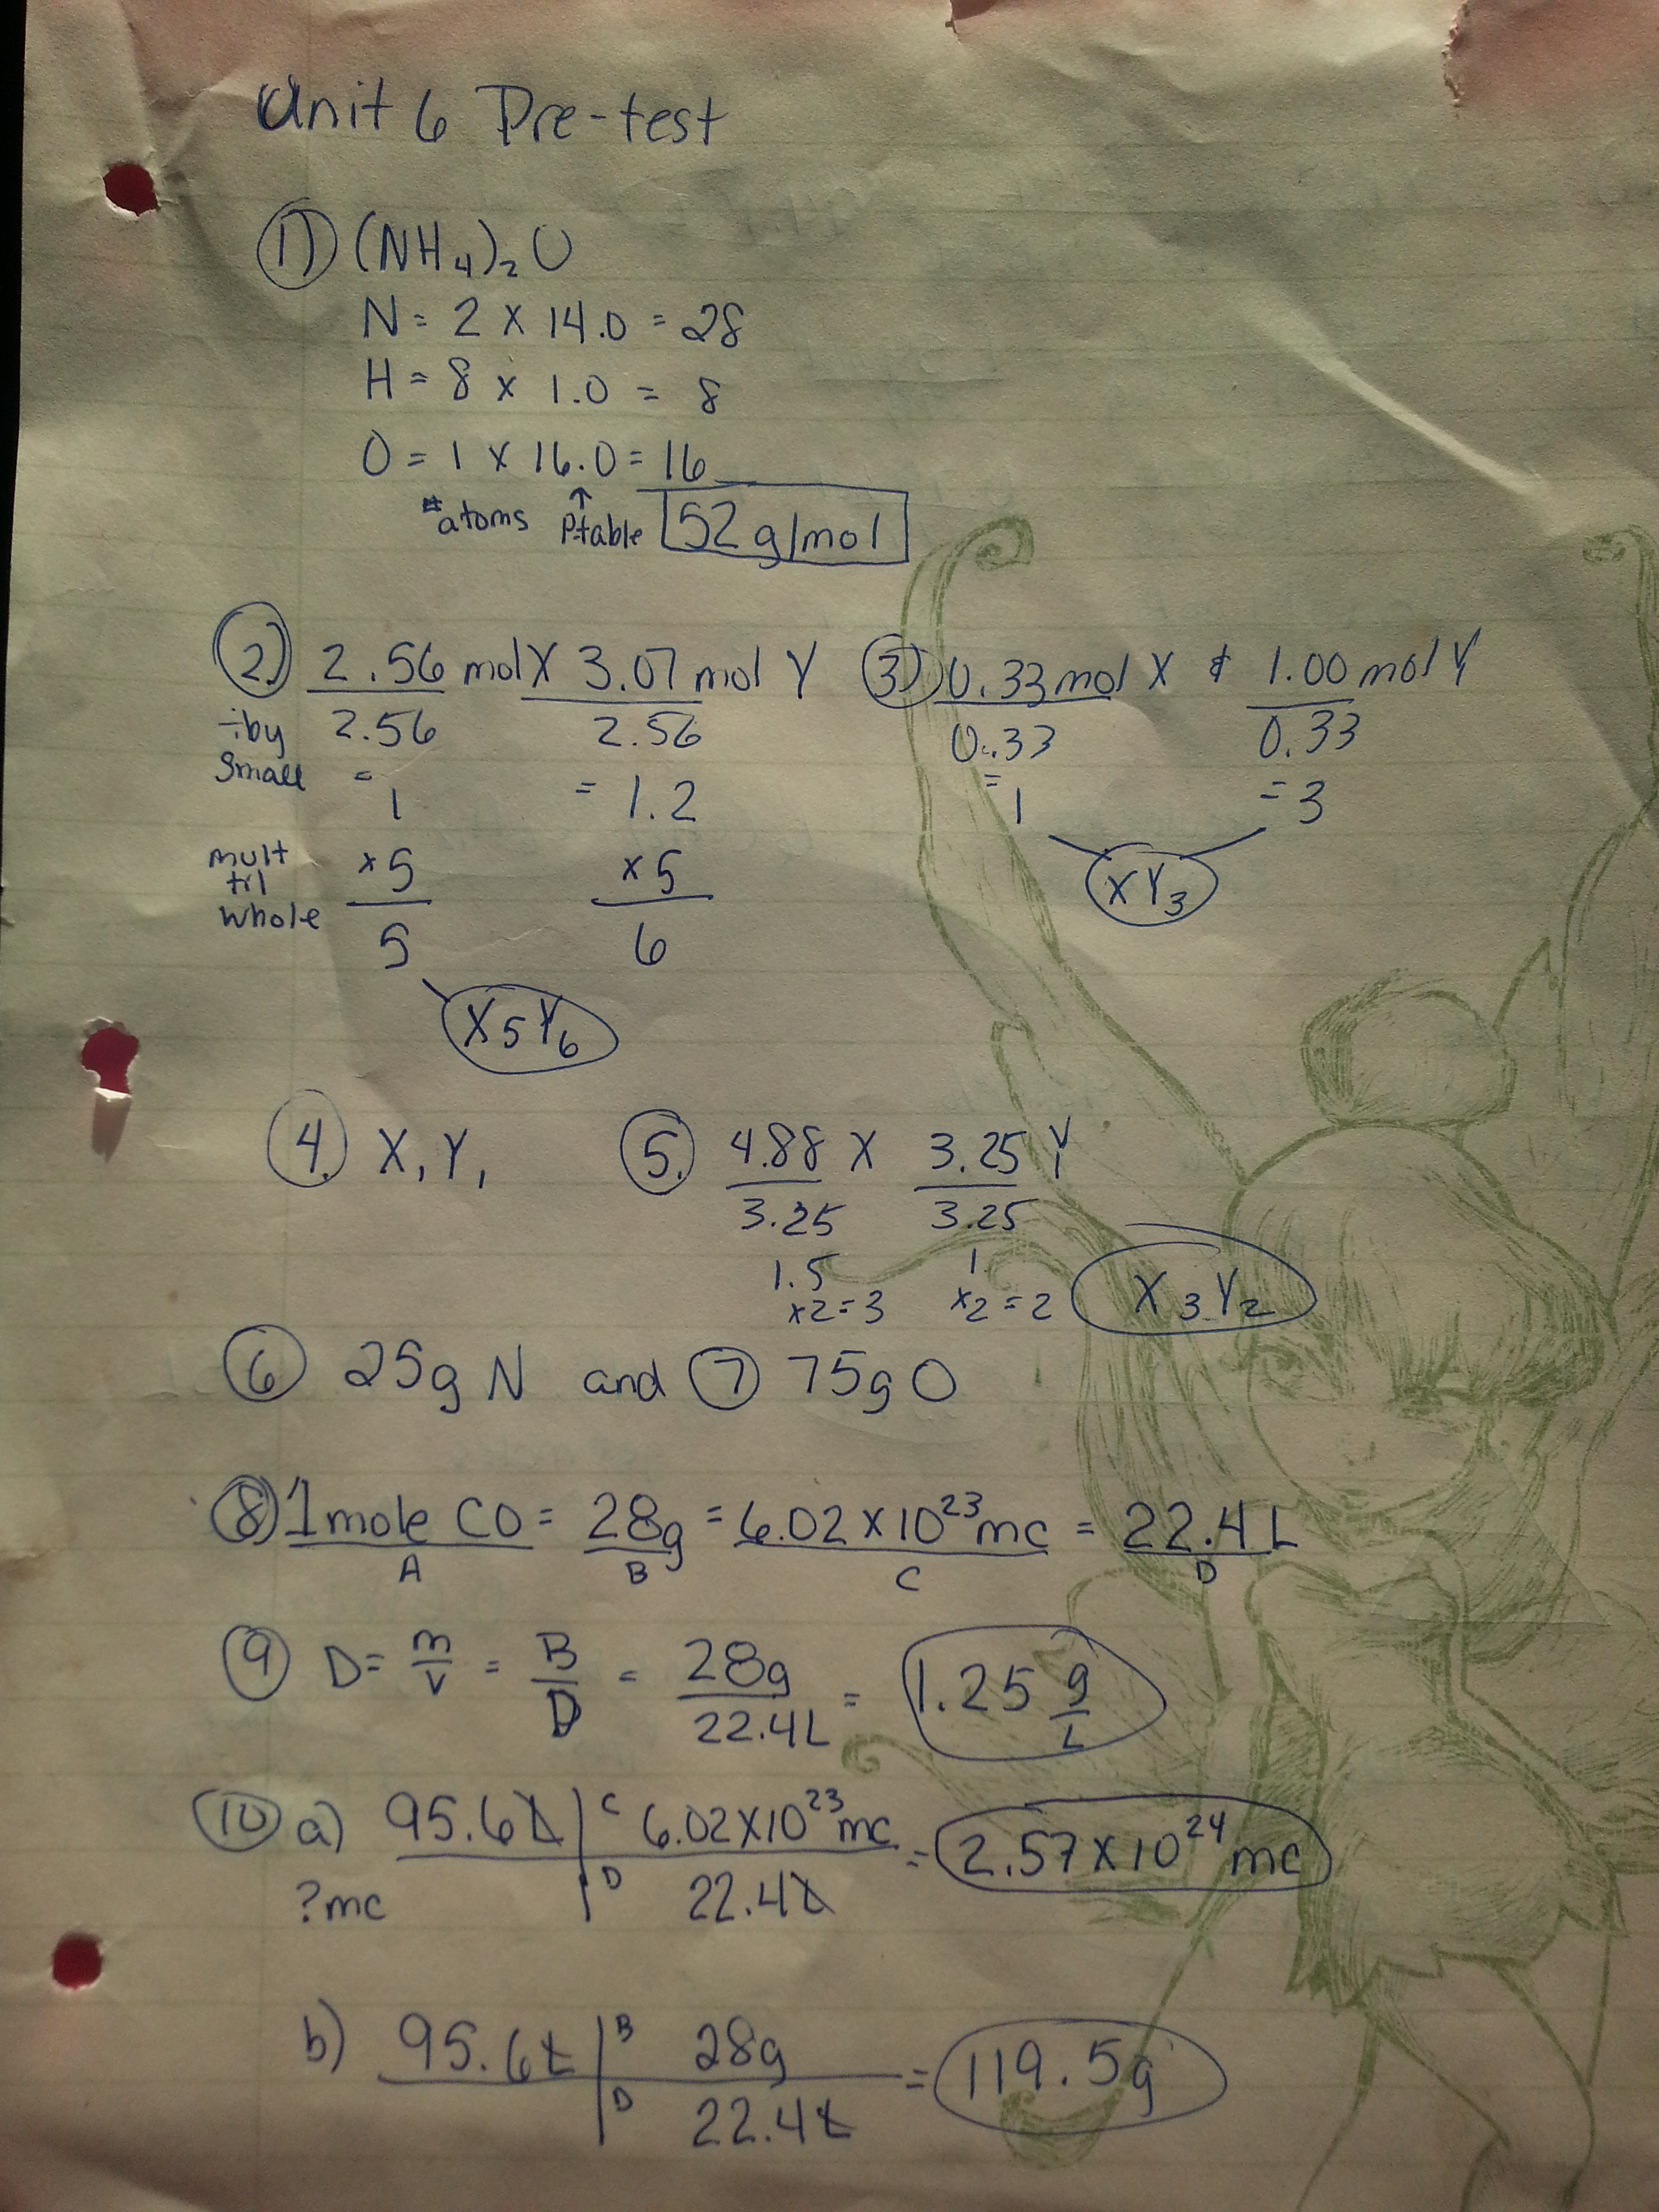 Unit 6 Pre-test
1) (NH₄)₂O
N = 2 x 14.0 = 28
H = 8 x 1.0 = 8
O = 1 x 16.0 = 16
# atoms ↑ P.table 52 g/mol
2.) 2.56 mol X 3.07 mol Y
÷by 2.56 2.56
small = 1 = 1.2
mult til whole x5 x5
5 6
X5Y6
3) 0.33 mol X & 1.00 mol Y
0.33 0.33
= 1 = 3
XY₃
4. X₁Y₁
5. 4.88 X 3.25 Y
3.25 3.25
1.5 1
x2=3 x2=2 X₃Y₂
6 25g N and 7 75g O
8) 1 mole CO = 28g = 6.02 X 10²³ mc = 22.4 L
A B C D
9 D = m/v = B/D = 28g/22.4L = 1.25 g/L
10 a) 95.6 L | C 6.02X10²³ mc = 2.57 X 10²⁴ mc
?mc D 22.4 L
b) 95.6 L | B 28g = 119.5g
D 22.4 L